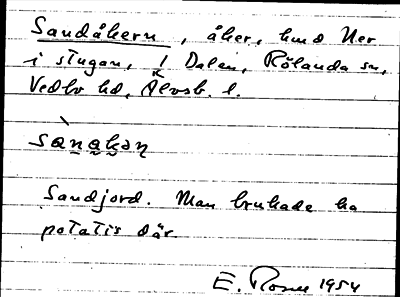 Sandåkern, åker, hmd Ner
i stugan, 1 Dalen, Rölanda sn,
Vedbo hd, Älvsb. l.
sànakəɳ
Sandjord. Man brukade ha
potatis där
E. Rosell 1954